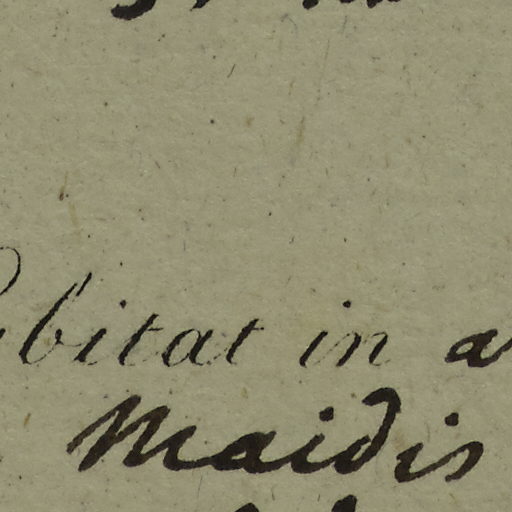 bitat in a
Maidis